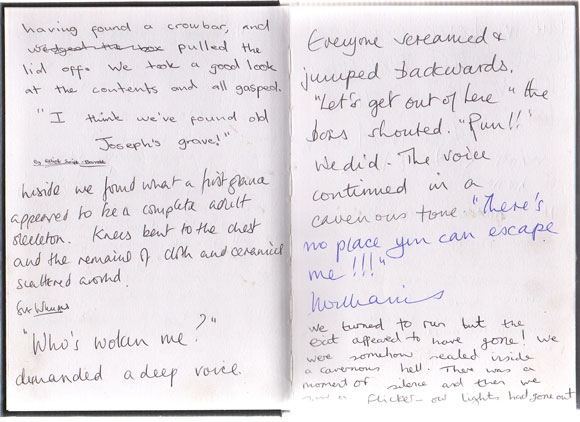 having found a crowbar, and
wedged the box pulled the
lid off. We took a good look
at the contents and all gasped.
"I think we've found old
Joseph's grave!"
By
Inside we found what a first glance
appeared to be a complete adult
skeleton. Knees bent to the chest
and the remains of cloth and ceramics
scattered around.
"Who's woken me?"
demanded a deep voice.
Everyone screamed &
jumped backwards.
"Let's get out of here" the
boss shouted. "Run!!"
We did. The voice
continued in a
cavernous tone "There's
no place you can escape
me!!!"
We turned to run but the
exit appeared to have gone! We
were somehow sealed inside
a cavernous hell. There was a
moment of silence and then we
a flicker - our lights had gone out